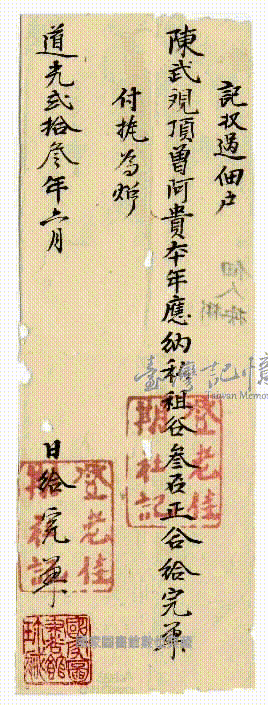 記收過佃戶
陳武覌頂曾阿貴本年應納租谷叁石正合給完單
付執為炤
道光弍拾叁年六月 日給完單
臺灣記憶
Taiwan Memory
登老佳
期社記
登老佳
國家圖
書館
珍藏